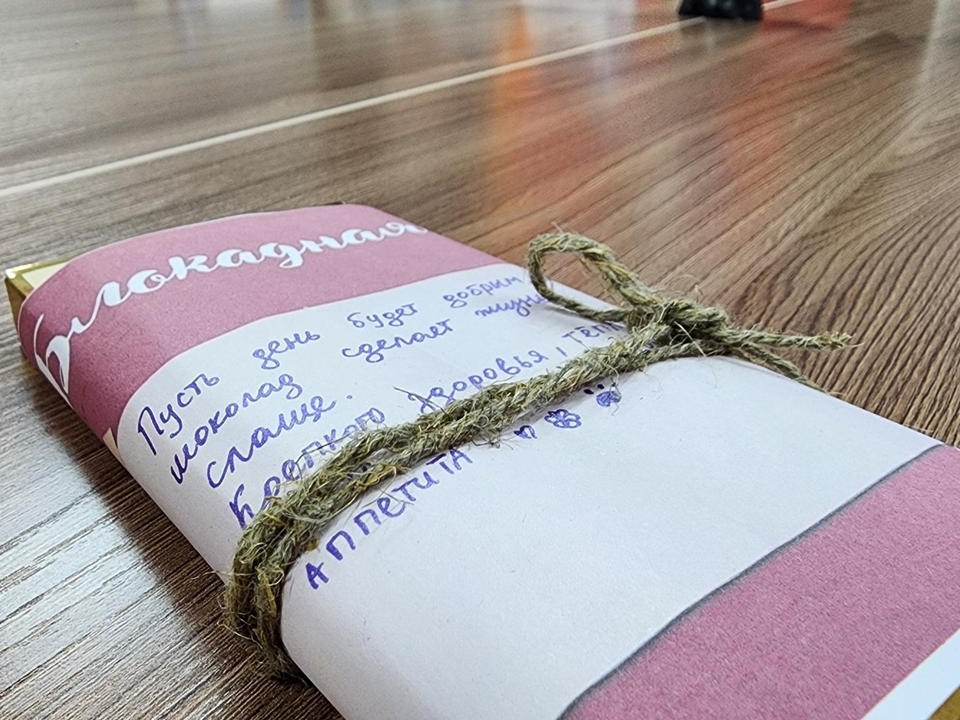 блокадная
Пусть день будет добрым
шоколад сделает жизнь
слаще.
Крепкого здоровья,
Аппетита